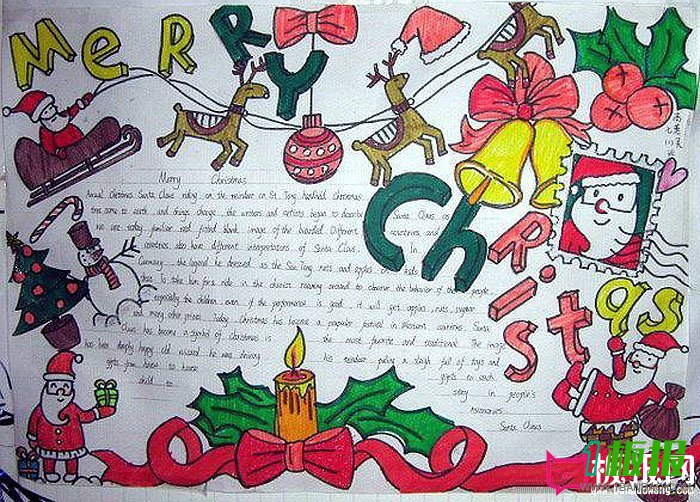 MeRRY
ChRiStas
Merry Christmas
Annual Christmas, Santa Claus riding on the reindeer on St. Tong hardheld Christmas
time come to earth and drings change, the writers and artists began to describe Santa Claus as
we are today familiar red fisted blank image of the bearded. Different countries and
countries also have different interpretations of Santa Claus. In
Germany, the legend he dressed as the Sue Tong nuts and apples on kids
shoes. To take him for a ride in the chariot roaming around to observe the behavior of those people,
especially the children even if the performance is good, it will get apples, nuts, sugar
and many other prizes. Today, Christmas has become a popular festival in Western countries. Santa
Claus has become a symbol of Christmas is the most favorite and traditional. The image
has been deeply happy old wizard he was driving his reindeer pulling a sleigh full of toys and
gifts from house to house gifts to each
child to stay in people's
memories
Santa Claus